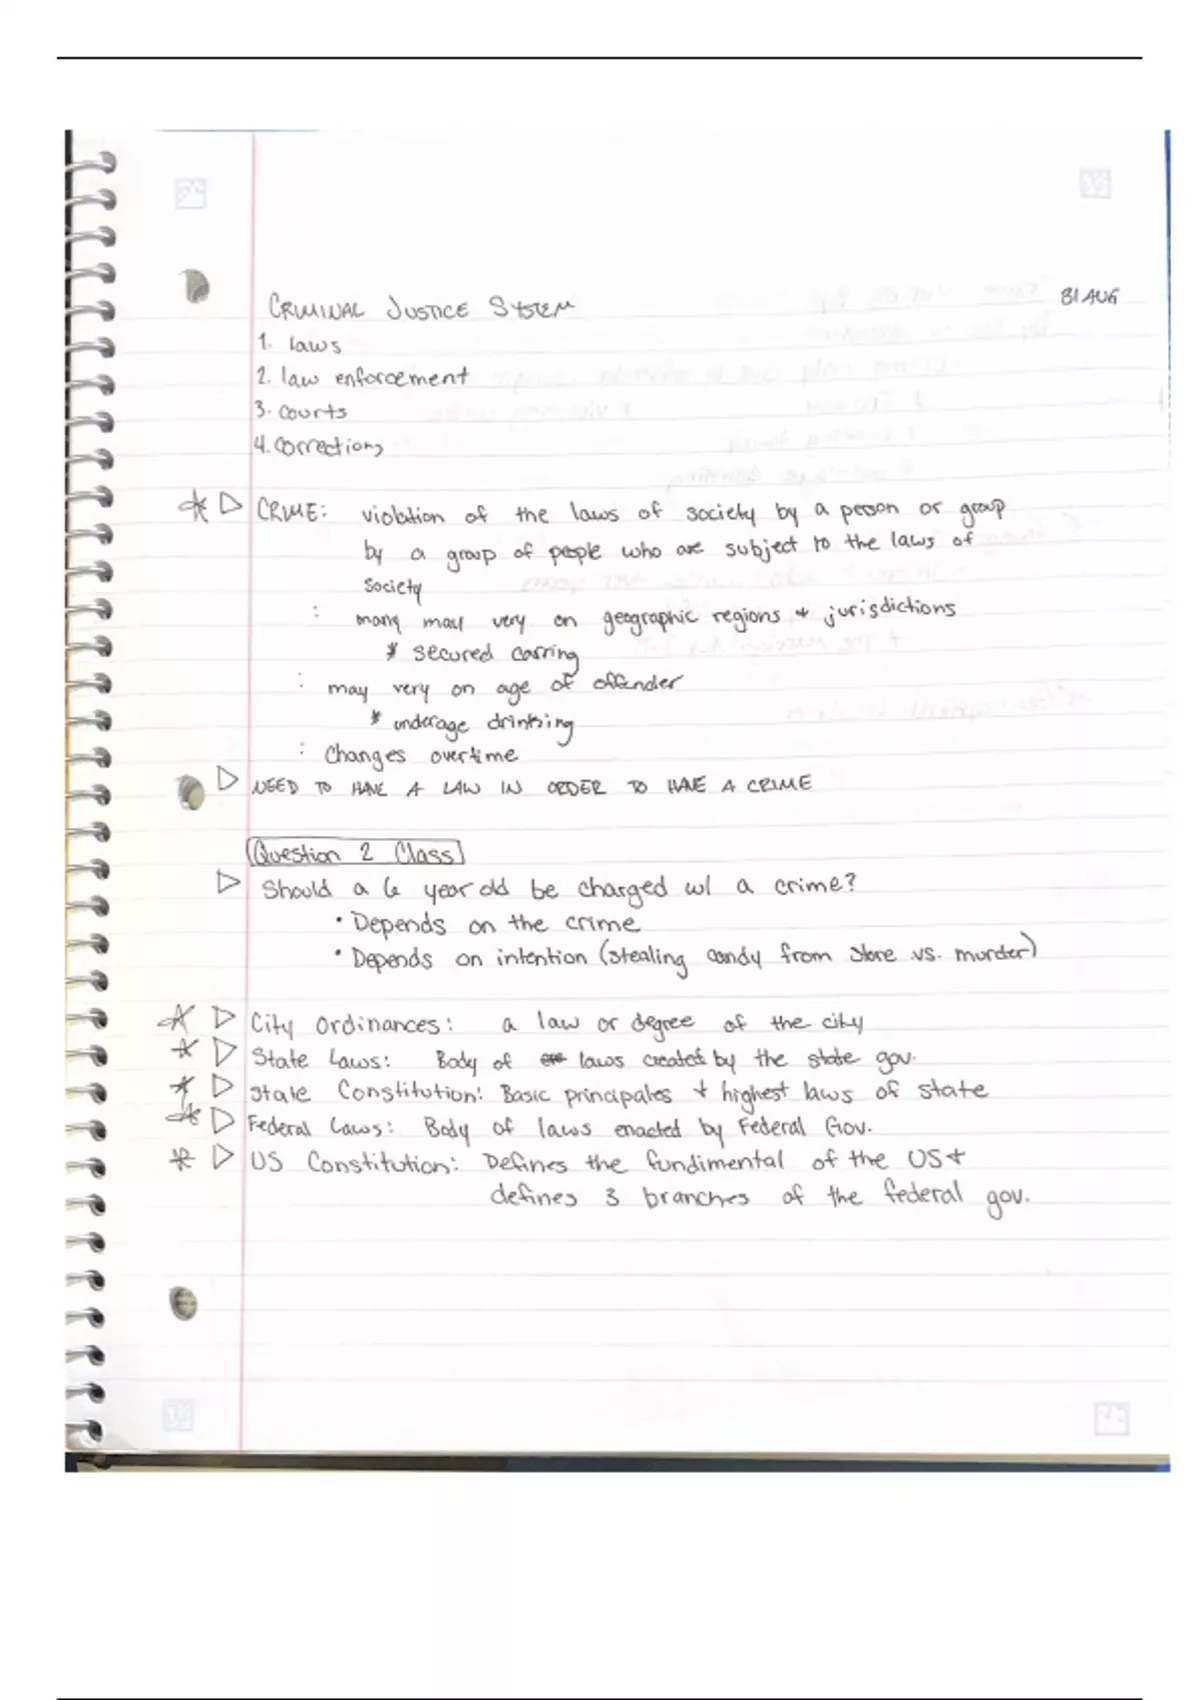 CRIMINAL JUSTICE SYSTEM 31 AUG
1. laws
2. law enforcement
3. courts
4. corrections
* ▷ CRIME: violation of the laws of society by a person or group
by a group of people who are subject to the laws of
society
: many may very on geographic regions + jurisdictions
* secured carring
: may very on age of offender
* underage drinking
: Changes overtime
▷ NEED TO HAVE A LAW IN ORDER TO HAVE A CRIME
Question 2 Class
▷ Should a 6 year old be charged w/ a crime?
• Depends on the crime
• Depends on intention (stealing candy from store vs. murder)
* ▷ City Ordinances: a law or degree of the city
* ▷ State Laws: Body of laws created by the state gov.
* ▷ State Constitution: Basic principales + highest laws of state
* ▷ Federal Laws: Body of laws enacted by Federal Gov.
* ▷ US Constitution: Defines the fundimental of the US +
defines 3 branches of the federal gov.